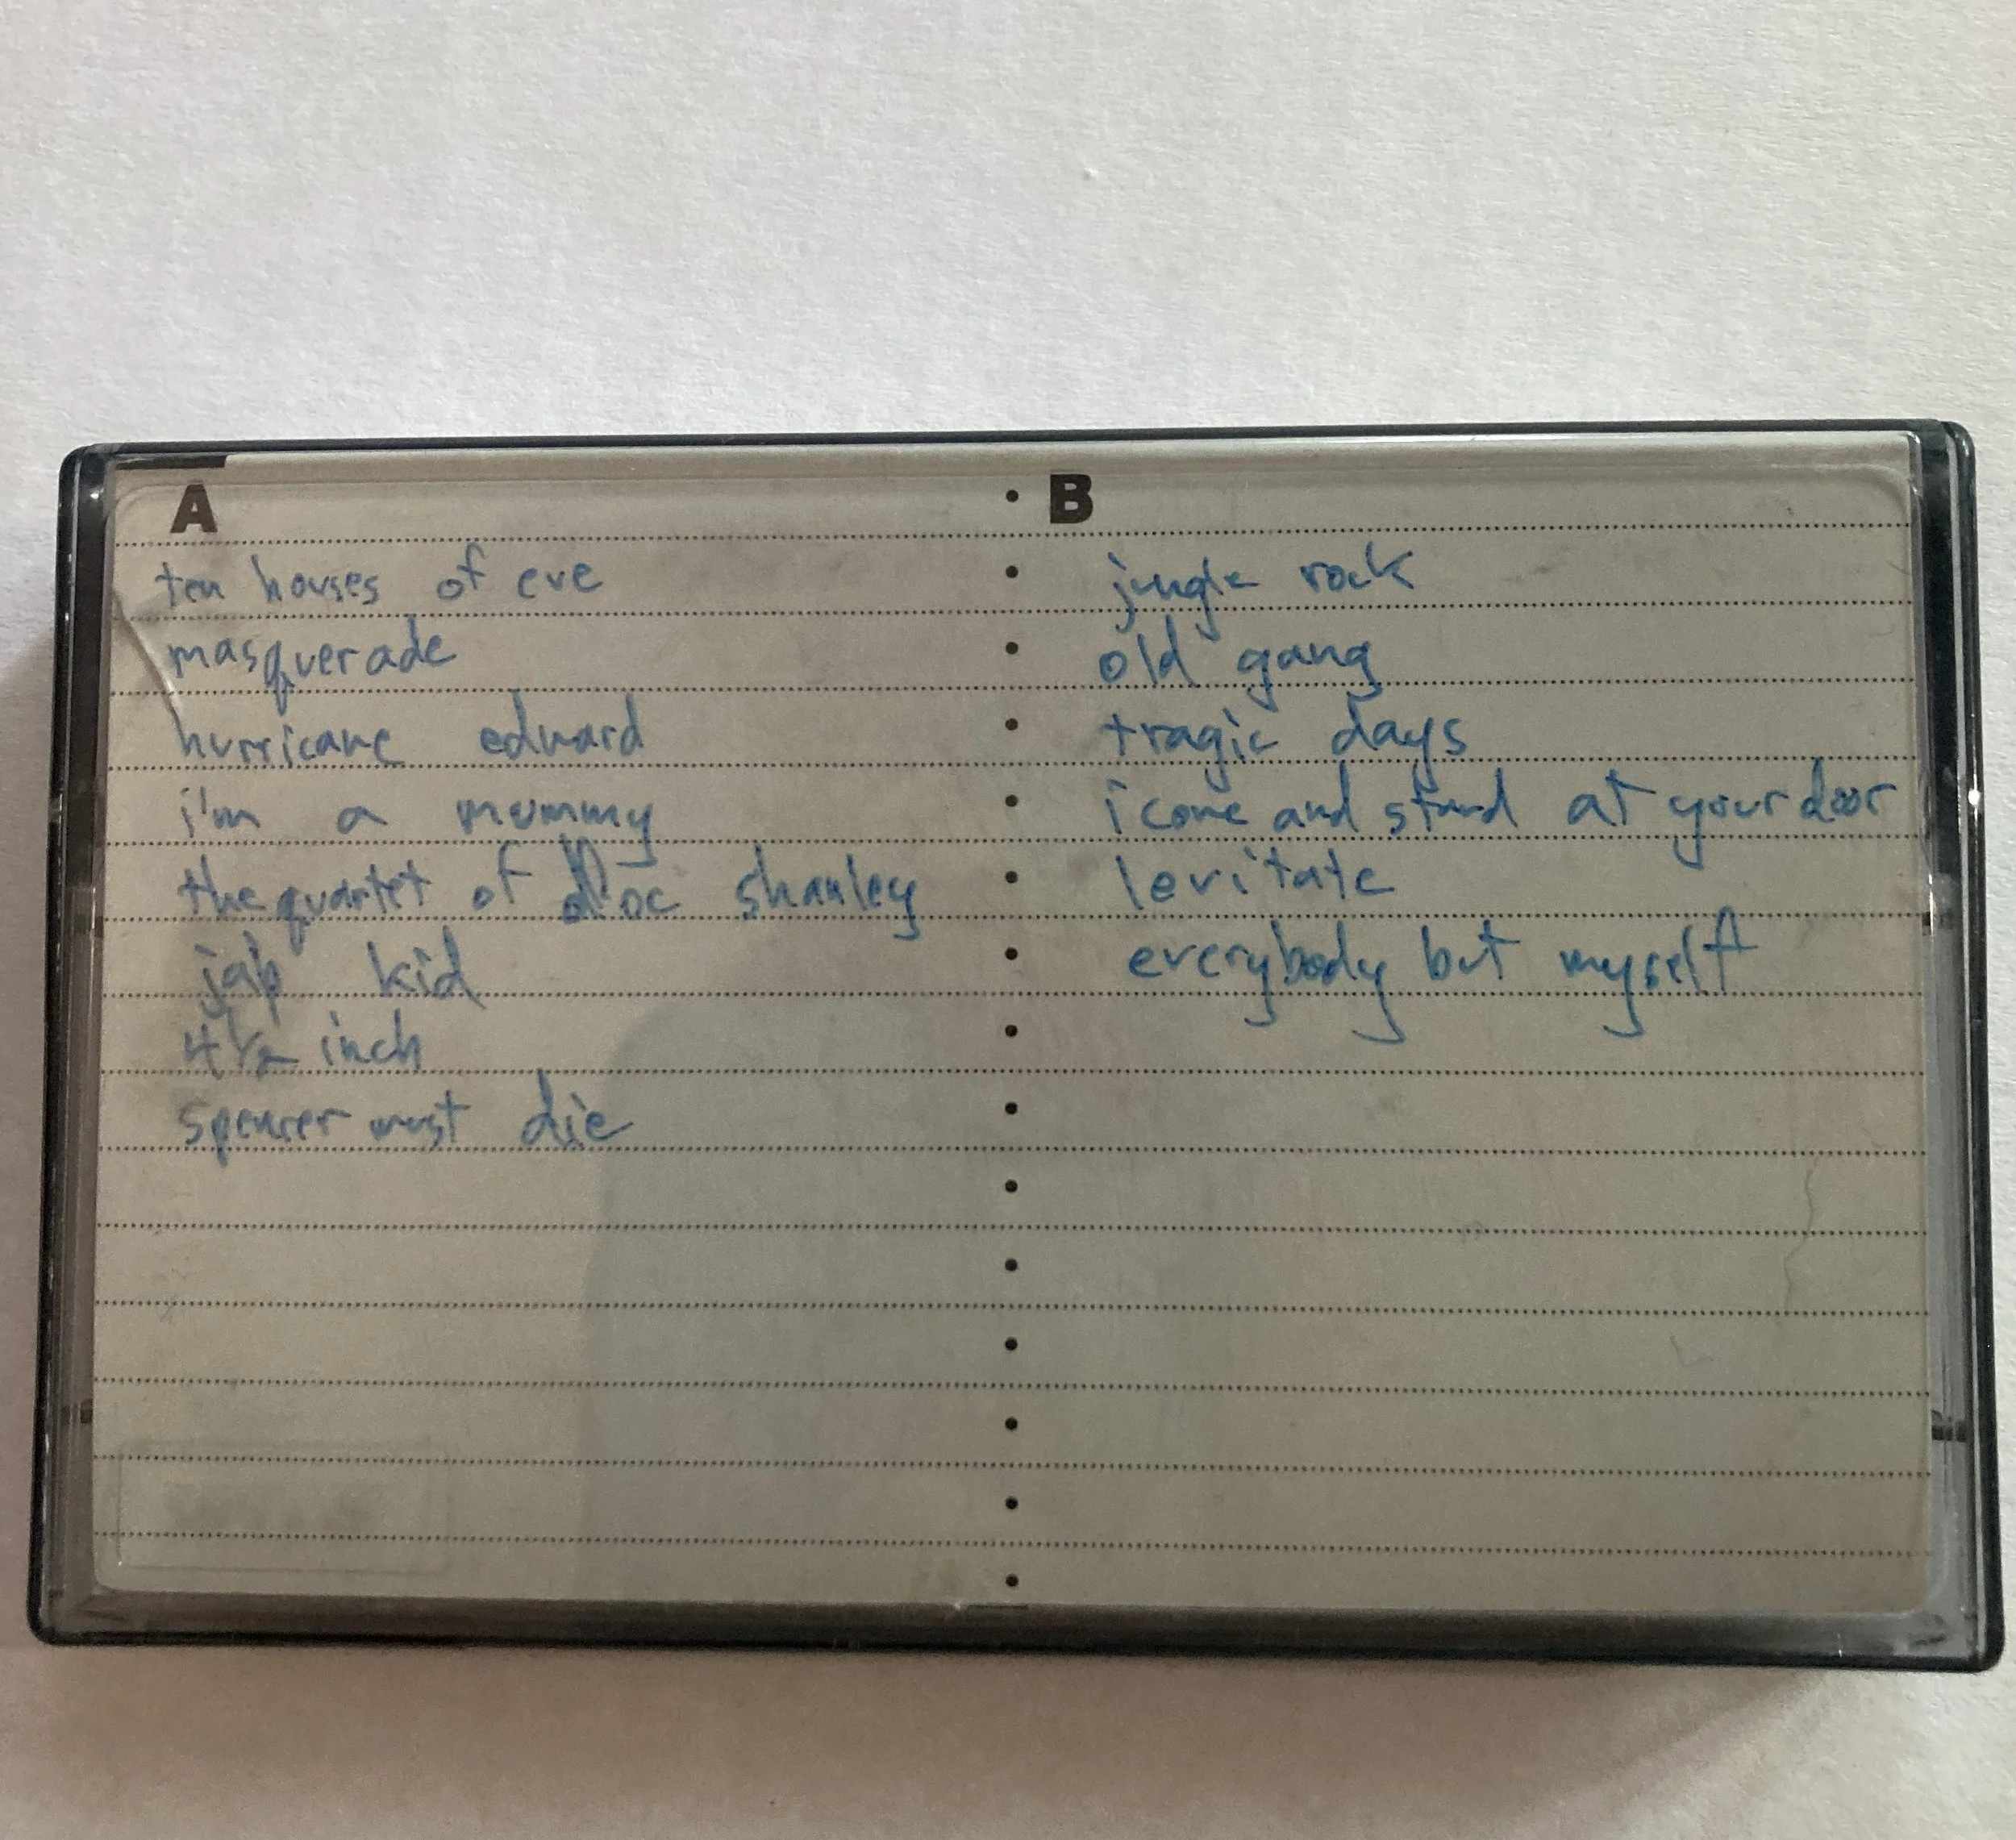 A
ten houses of eve
masquerade
hurricane edward
i'm a mummy
the quartet of doc shanley
jap kid
4½ inch
spencer must die
B
jungle rock
old gang
tragic days
i come and stand at your door
levitate
everybody but myself